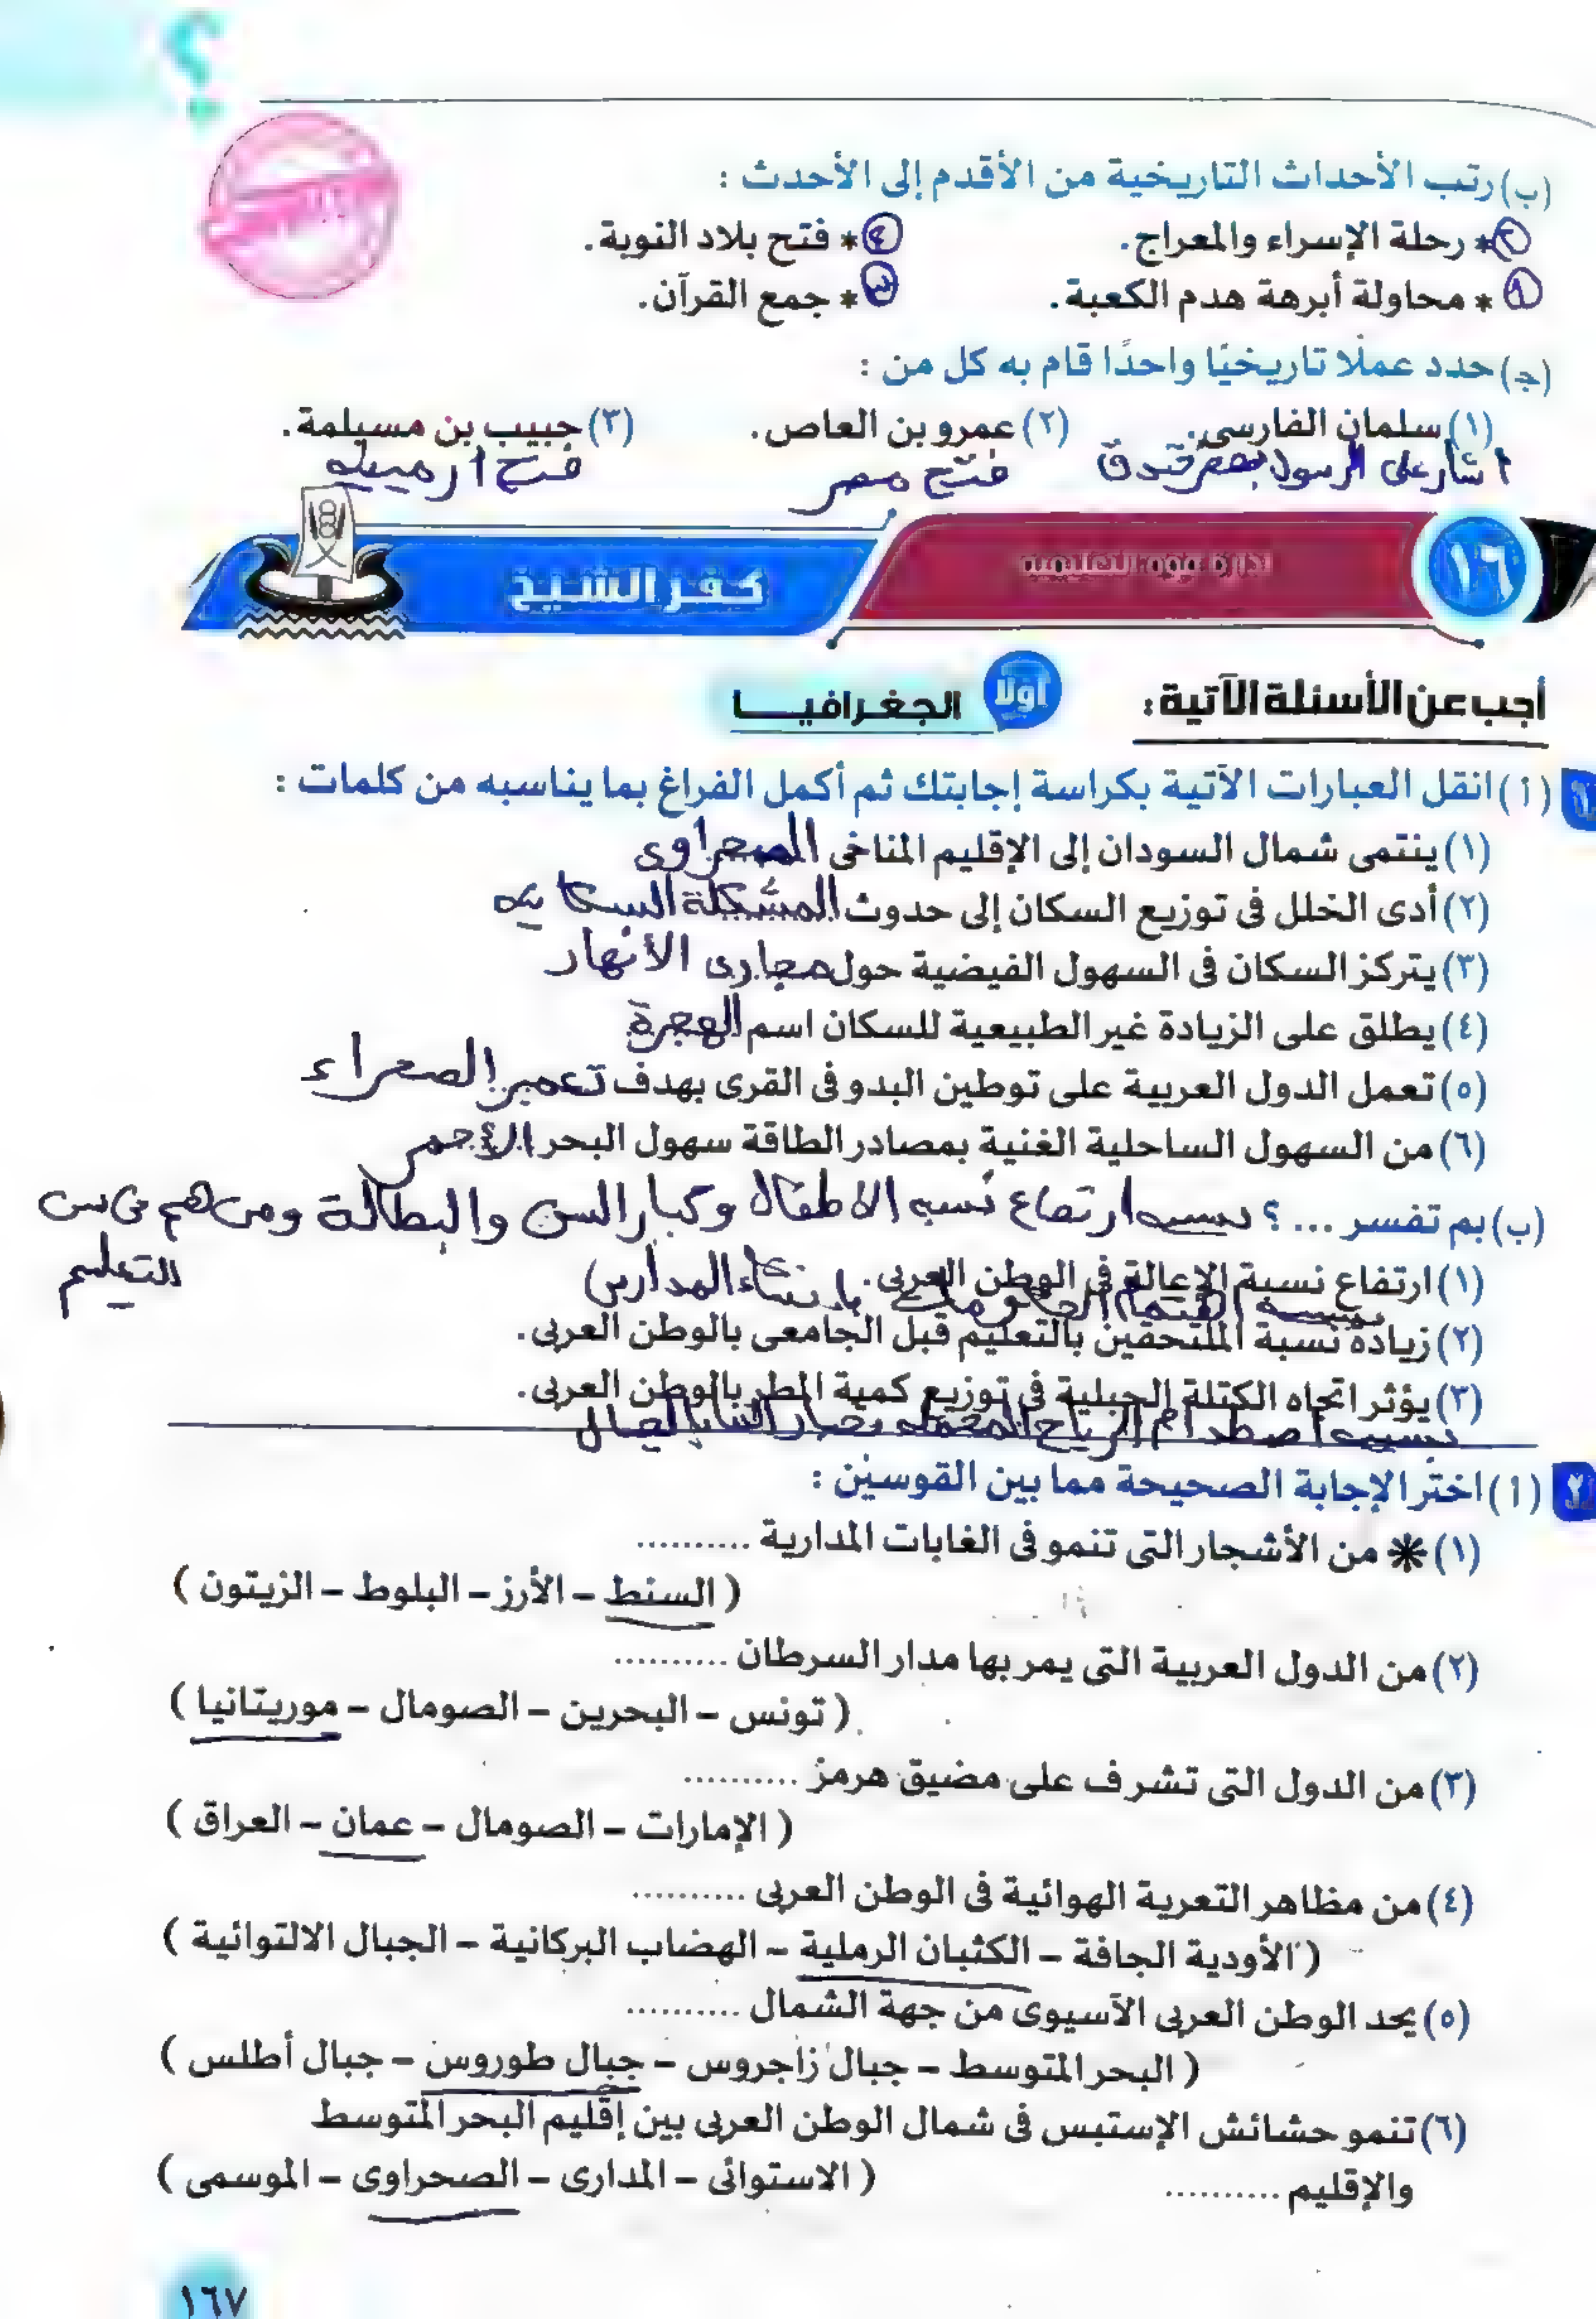 (ب) رتب الأحداث التاريخية من الأقدم إلى الأحدث :
٢ * رحلة الإسراء والمعراج. ٤ * فتح بلاد النوبة.
١ * محاولة أبرهة هدم الكعبة. ٣ * جمع القرآن.
(جـ) حدد عملًا تاريخيًا واحدًا قام به كل من :
(١) سلمان الفارسى. (٢) عمرو بن العاص. (٣) حبيب بن مسيلمة.
اشار على الرسول بحفر خندق فتح مصر فتح ارمينيه
١٦ كفر الشيخ
أجب عن الأسئلة الآتية : أولًا الجغرافيا
١ (أ) انقل العبارات الآتية بكراسة إجابتك ثم أكمل الفراغ بما يناسبه من كلمات :
(١) ينتمى شمال السودان إلى الإقليم المناخى الصحراوى
(٢) أدى الخلل فى توزيع السكان إلى حدوث المشكلة السكانيه
(٣) يتركز السكان فى السهول الفيضية حول مجارى الأنهار
(٤) يطلق على الزيادة غير الطبيعية للسكان اسم الهجرة
(٥) تعمل الدول العربية على توطين البدو فى القرى بهدف تعمير الصحراء
(٦) من السهول الساحلية الغنية بمصادر الطاقة سهول البحر الأحمر
(ب) بم تفسر ... ؟ بسبب ارتفاع نسبه الاطفال وكبار السن والبطالة ومن هم فى سن
التعليم
(١) ارتفاع نسبة الإعالة فى الوطن العربى.
بسبب اهتمام الحكومات بإنشاء المدارس
(٢) زيادة نسبة الملتحقين بالتعليم قبل الجامعى بالوطن العربى.
(٣) يؤثر اتجاه الكتلة الجبلية فى توزيع كمية المطر بالوطن العربى.
بسبب اصطدام الرياح المحمله ببخار الماء بالجبال
٢ (أ) اختر الإجابة الصحيحة مما بين القوسين :
(١) * من الأشجار التى تنمو فى الغابات المدارية ..........
( السنط – الأرز – البلوط – الزيتون )
(٢) من الدول العربية التى يمر بها مدار السرطان ..........
( تونس – البحرين – الصومال – موريتانيا )
(٣) من الدول التى تشرف على مضيق هرمز ..........
( الإمارات – الصومال – عمان – العراق )
(٤) من مظاهر التعرية الهوائية فى الوطن العربى ..........
( الأودية الجافة – الكثبان الرملية – الهضاب البركانية – الجبال الالتوائية )
(٥) يحد الوطن العربى الآسيوى من جهة الشمال ..........
( البحر المتوسط – جبال زاجروس – جبال طوروس – جبال أطلس )
(٦) تنمو حشائش الإستبس فى شمال الوطن العربى بين إقليم البحر المتوسط
والإقليم .......... ( الاستوائى – المدارى – الصحراوى – الموسمى )
١٦٧